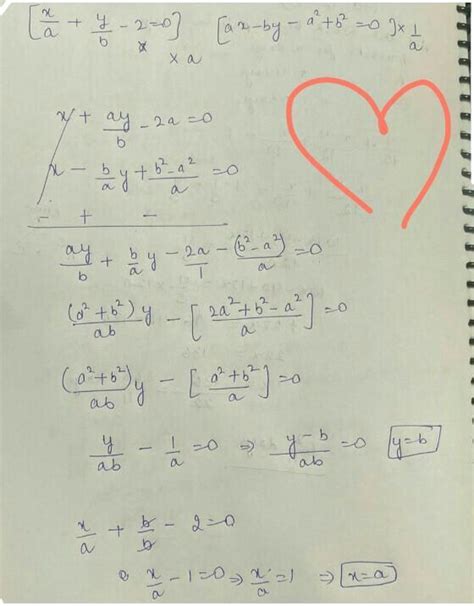 [x/a + y/b - 2 = 0] × a [ax - by - a² + b² = 0] × 1/a
x + ay/b - 2a = 0
x - b/a y + b² - a²/a = 0
- + -
ay/b + b/a y - 2a/1 - (b² - a²)/a = 0
(a² + b²)/ab y - [2a² + b² - a²/a] = 0
(a² + b²)/ab y - [a² + b²/a] = 0
y/ab - 1/a = 0 ⇒ y - b/ab = 0 y = b
x/a + b/b - 2 = 0
x/a - 1 = 0 ⇒ x/a = 1 ⇒ x = a